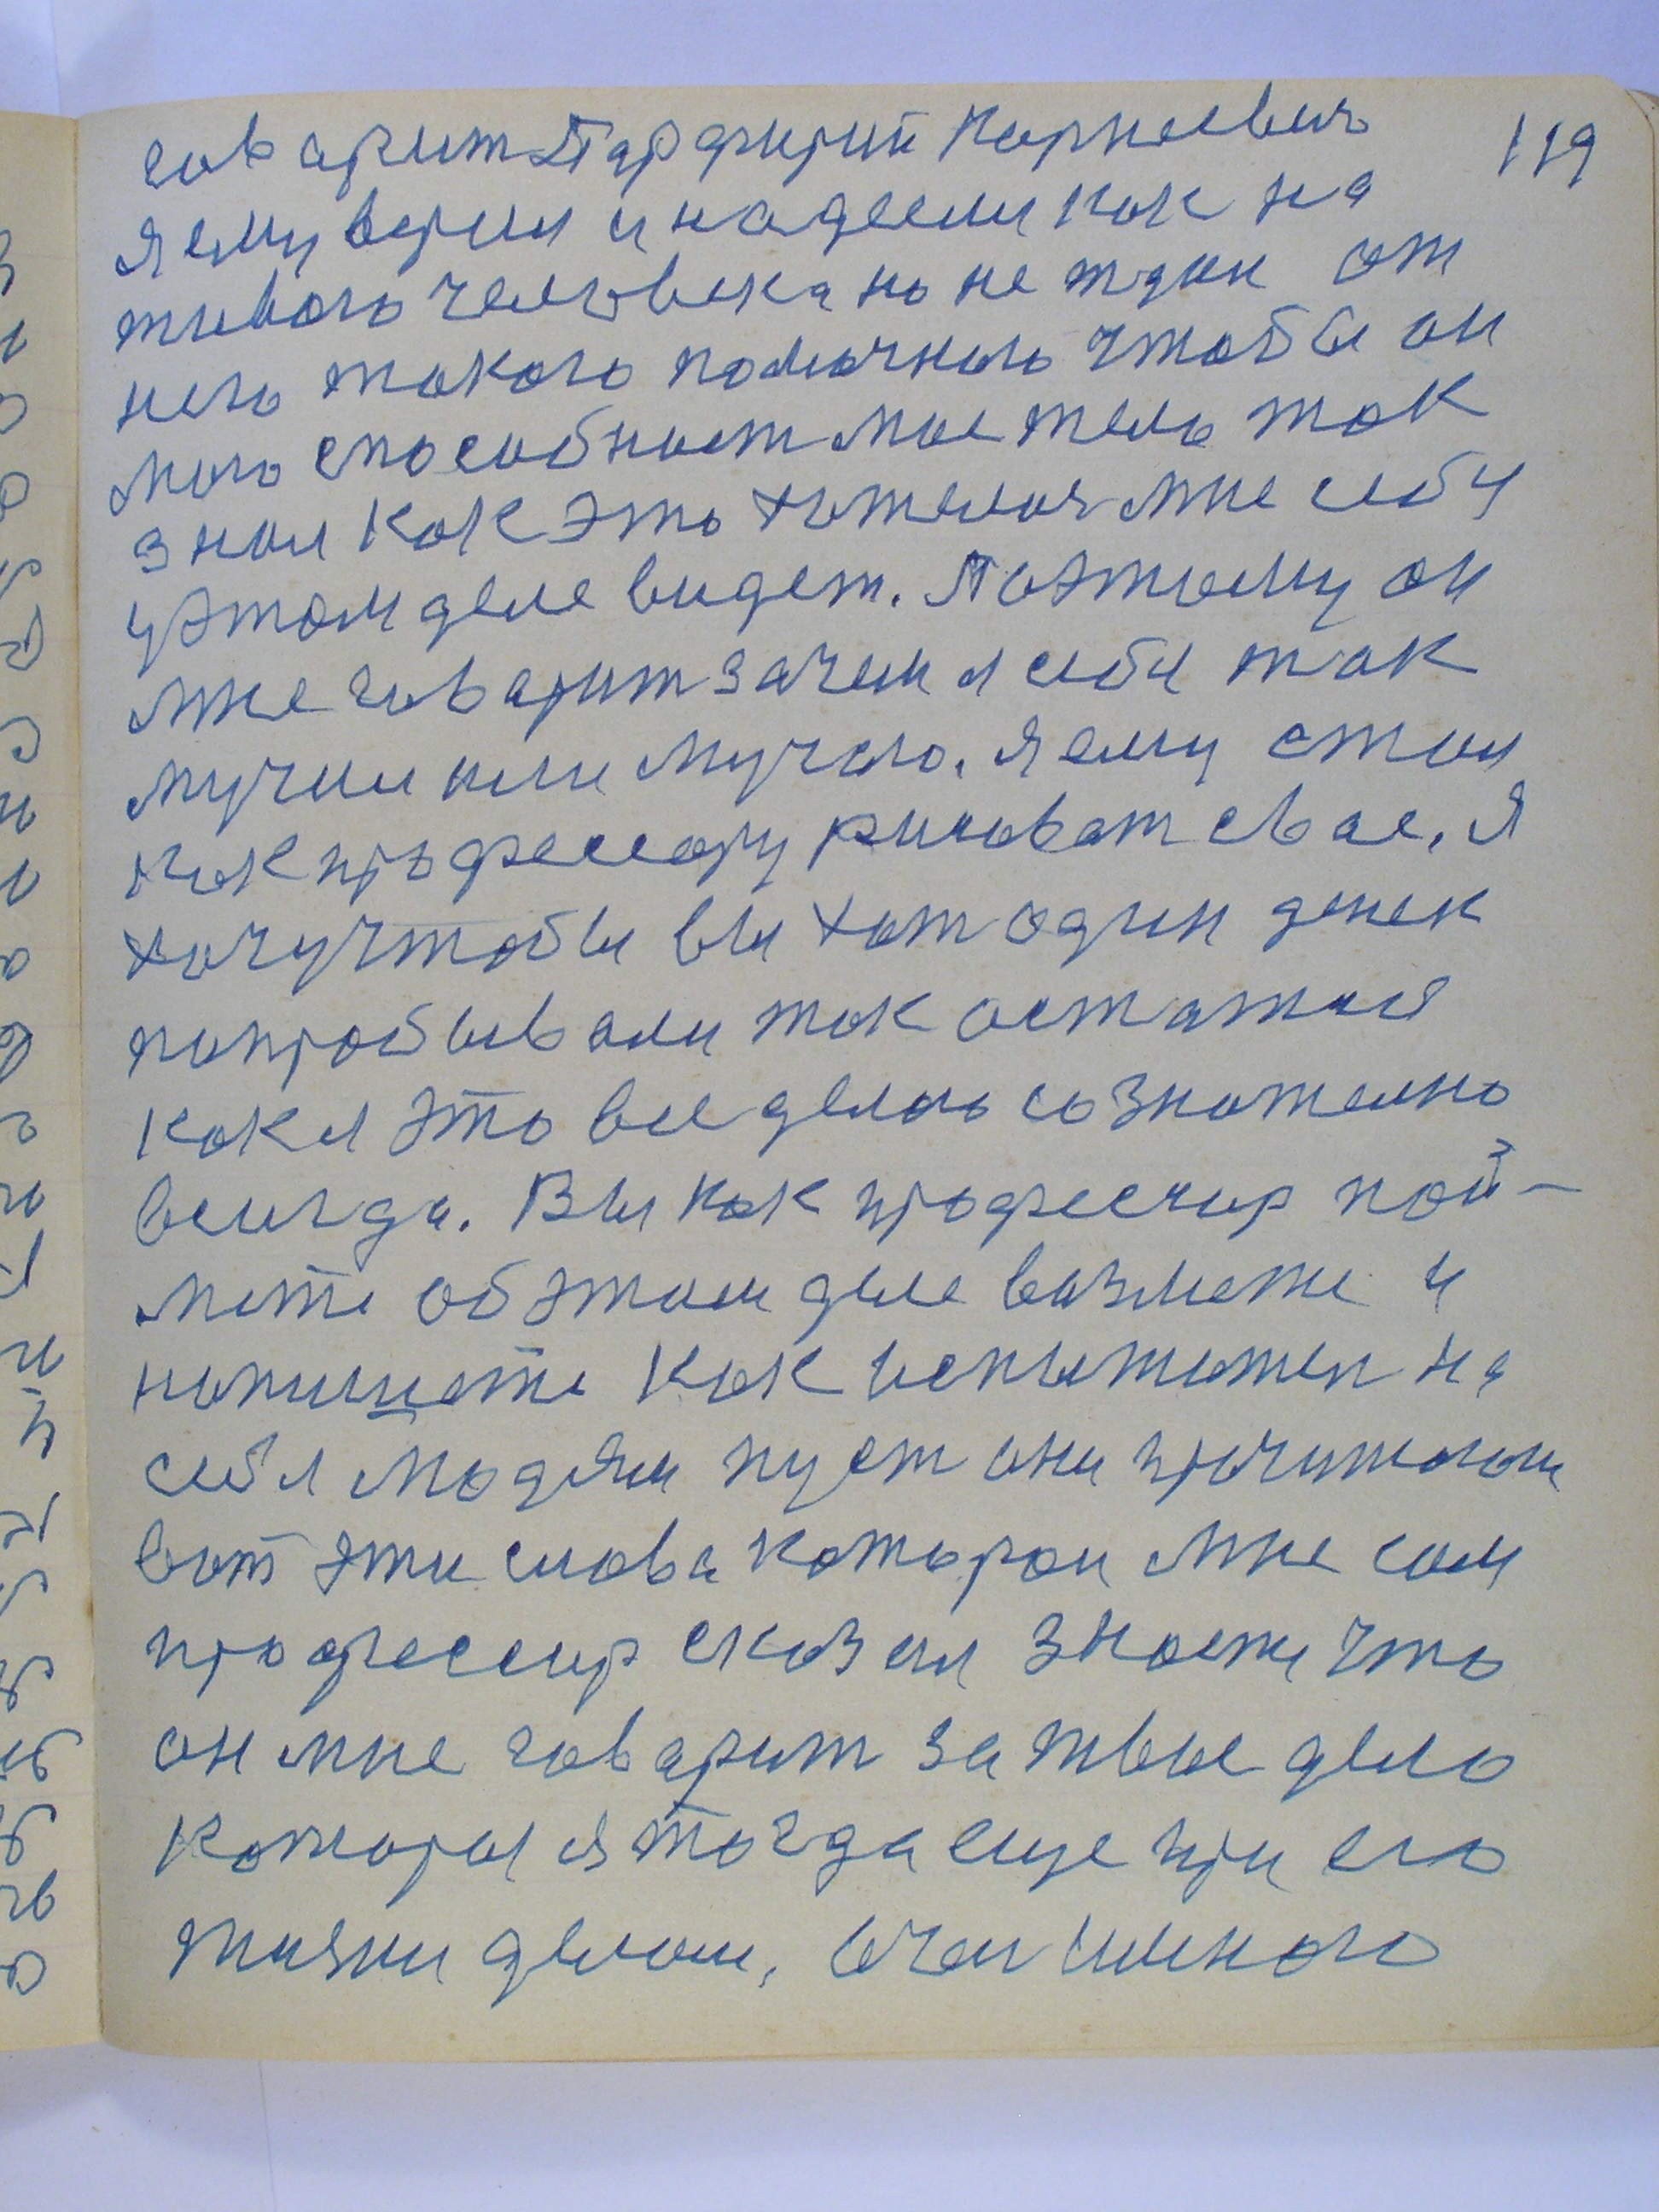 119
говарит Парфирий Корнеевич
я ему верил и надеели как на
живого человека но не ждал от
него такого помочного чтобы он
мого способност мое тело так
знал как это хотелоя мне себи
у этом деле видет. Поэтому он
мне говарит зачем я себя так
мучил или мучаю. Я ему стал
как професеору рисоват свае. Я
хочу чтобы вы хот один денек
попробывали так астатися
как я это все делаю сознателно
всигда. Вы как профессир пой-
мете об этом деле вазмете и
напишете как испытател на
себя людям пуст они прочитают
вот эти слова которои мне сам
профессир сказал знаете что
он мне говарит за твое дело
каторы я тогда еще при его
жизни делаю,